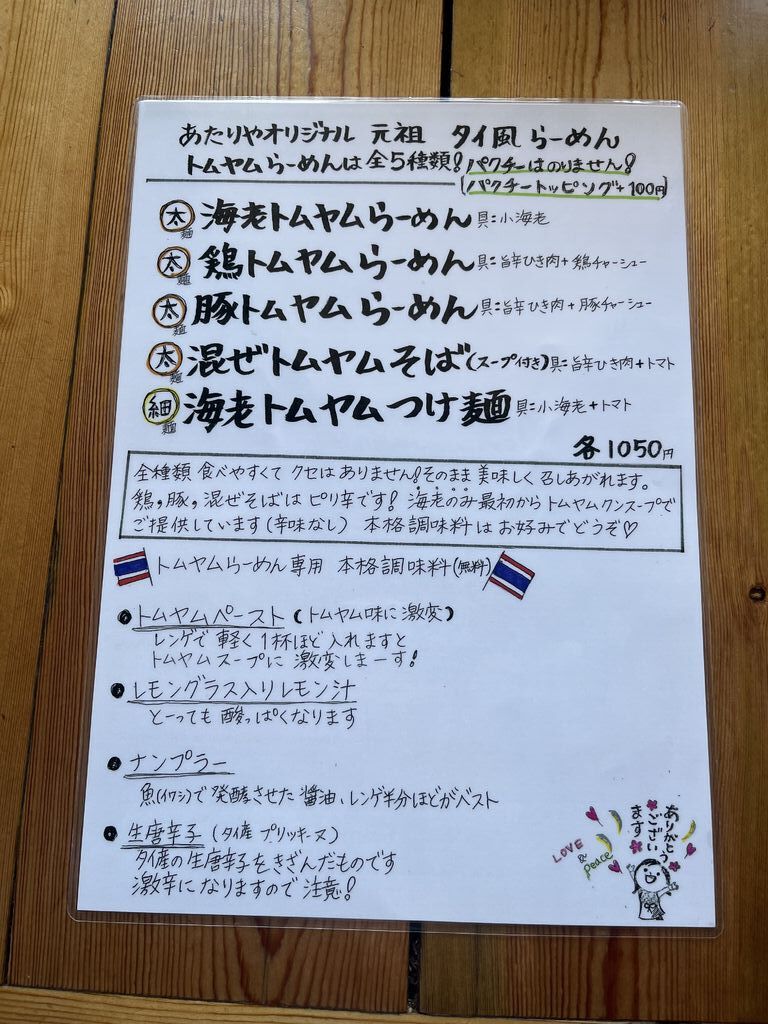 あたりやオリジナル 元祖 タイ風らーめん
トムヤムらーめんは全5種類! パクチーはのりません!
(パクチートッピング+100円)
太麺 海老トムヤムらーめん 具=小海老
太麺 鶏トムヤムらーめん 具=旨辛ひき肉+鶏チャーシュー
太麺 豚トムヤムらーめん 具=旨辛ひき肉+豚チャーシュー
太麺 混ぜトムヤムそば(スープ付き) 具=旨辛ひき肉+トマト
細麺 海老トムヤムつけ麺 具=小海老+トマト
各1050円
全種類 食べやすくて クセはありません!そのまま美味しく召しあがれます。
鶏,豚,混ぜそばは ピリ辛です! 海老のみ最初からトムヤムクンスープで
ご提供しています(辛味なし) 本格調味料はお好みでどうぞ♡
トムヤムらーめん専用 本格調味料(無料)
● トムヤムペースト (トムヤム味に激変)
レンゲで 軽く1杯ほど入れますと
トムヤムスープに 激変しまーす!
● レモングラス入りレモン汁
とーっても 酸っぱくなります
● ナンプラー
魚(イワシ)で発酵させた 醤油、レンゲ半分ほどがベスト
● 生唐辛子 (タイ産 プリッキーヌ)
タイ産の生唐辛子をきざんだものです
激辛になりますので 注意!
ありがとう
ござい
ます
LOVE
&
Peace